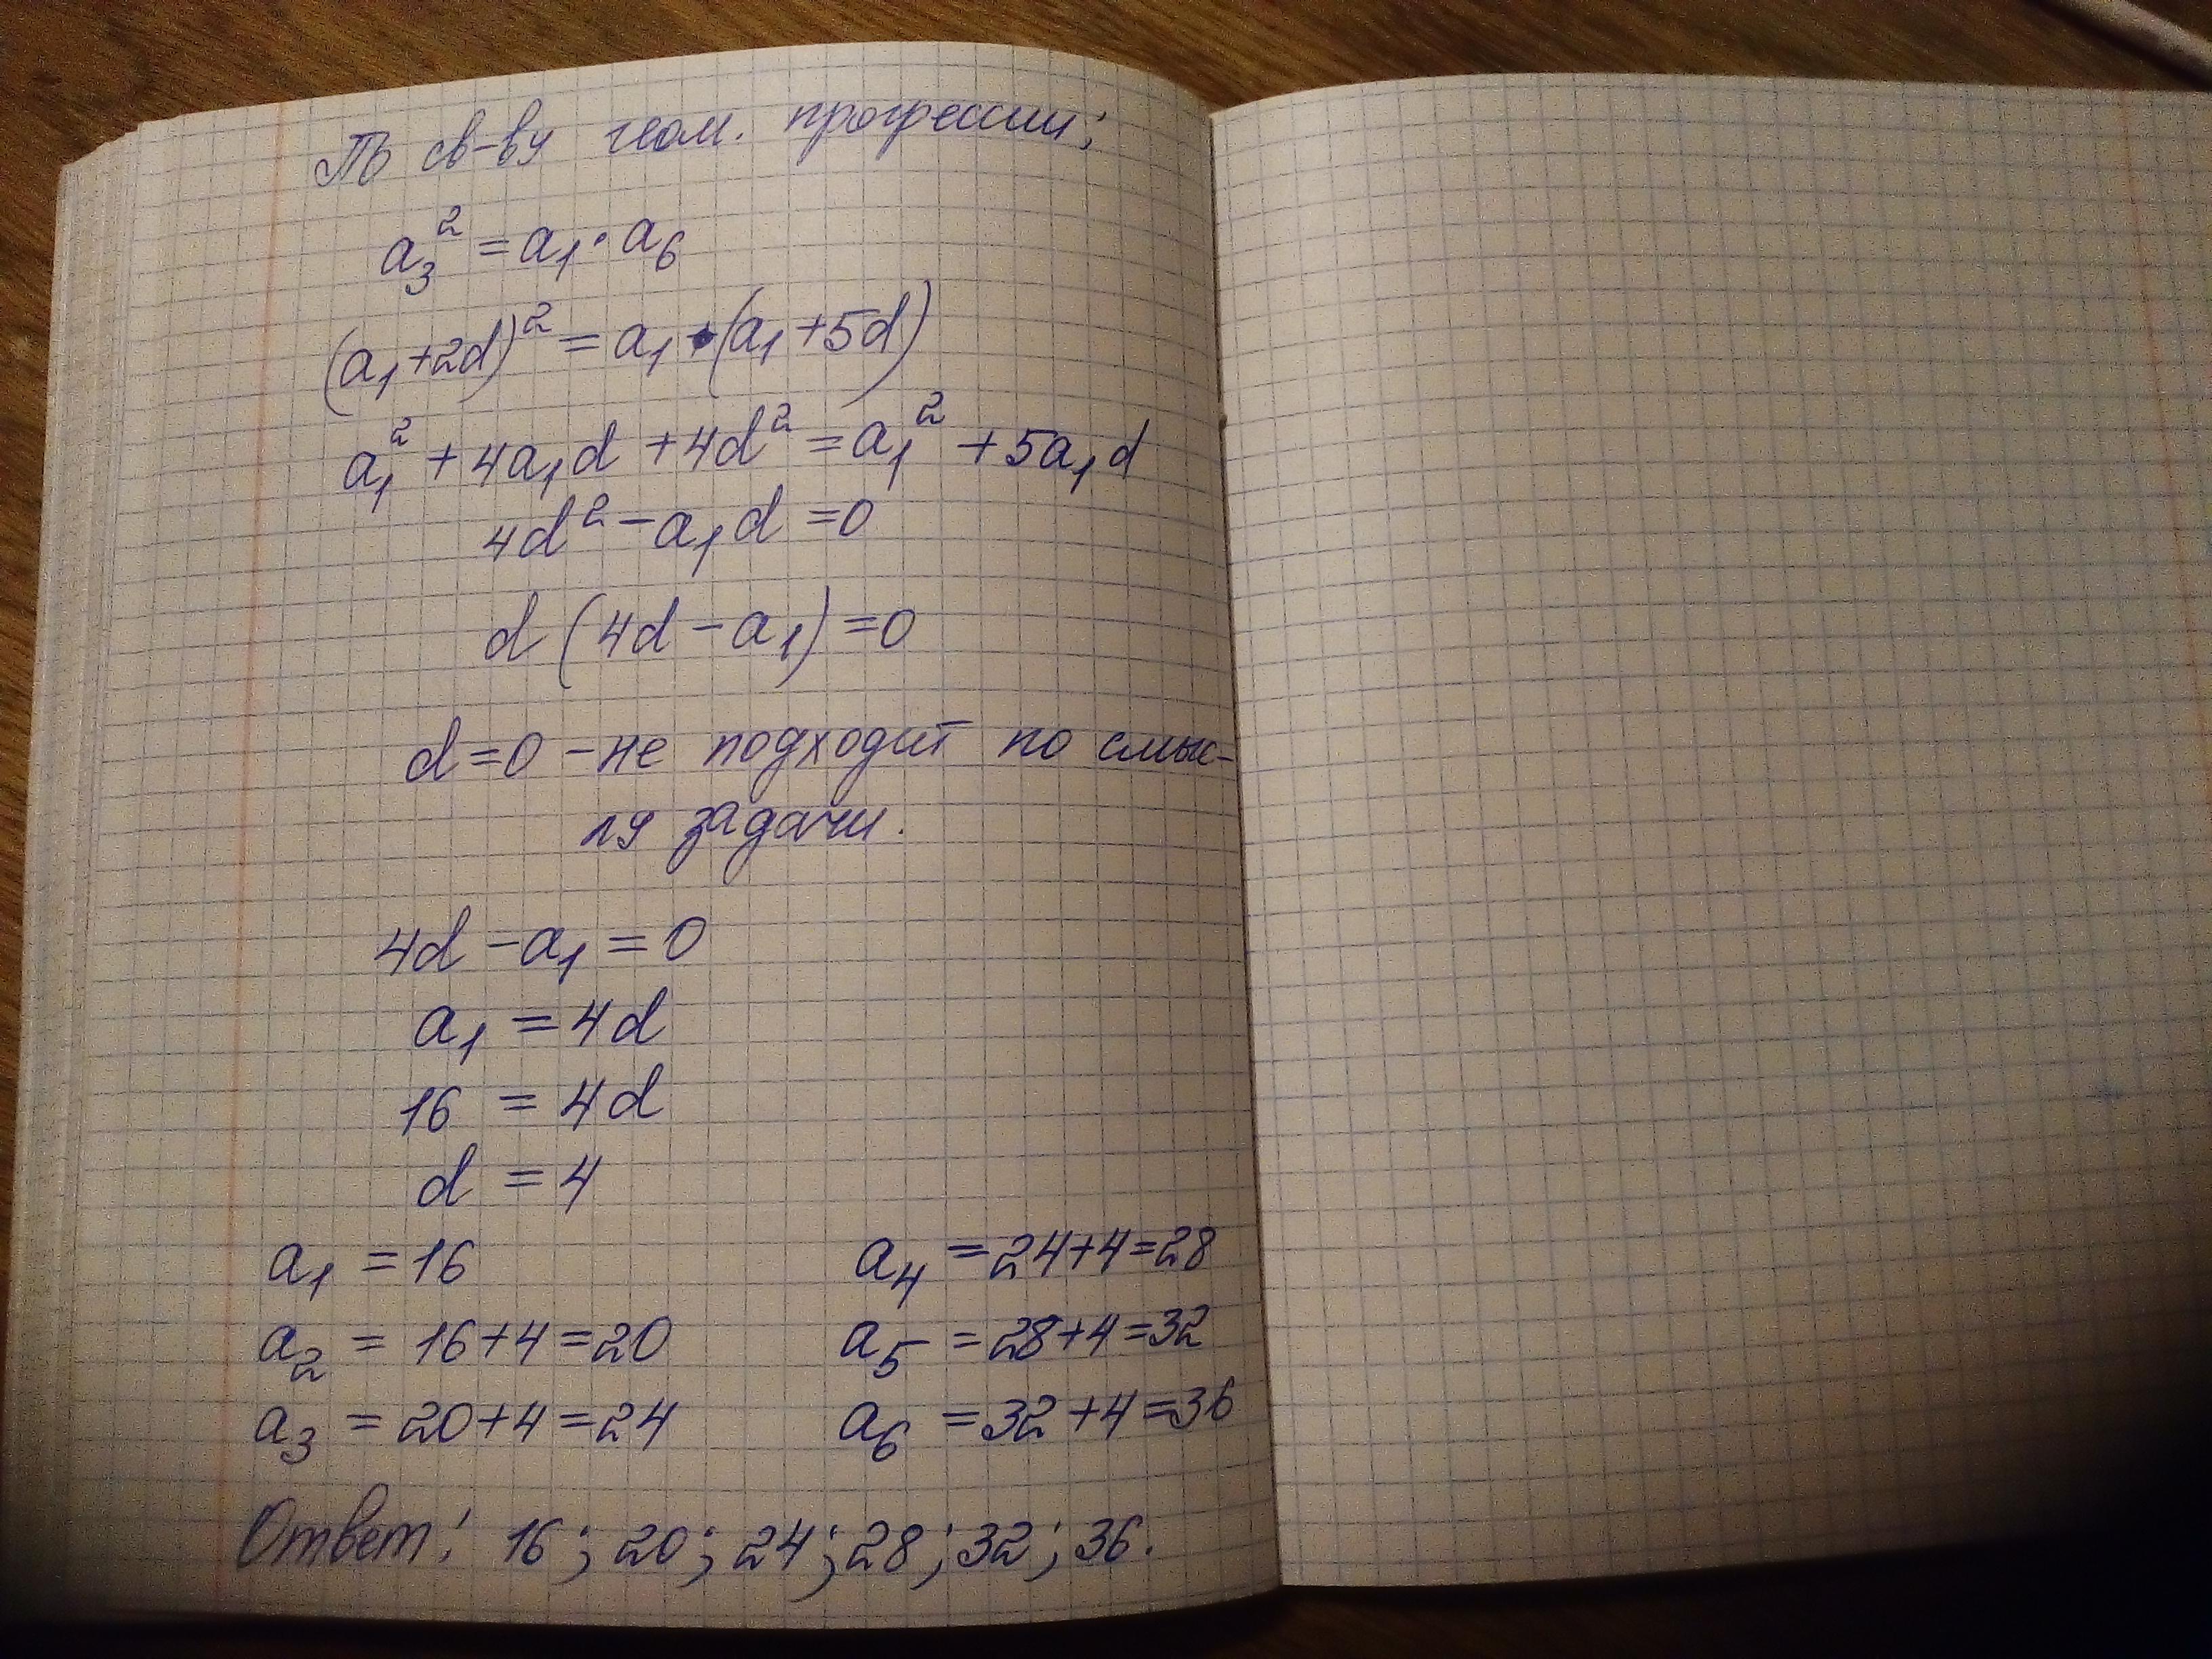 По св-ву геом. прогрессии;
a₃² = a₁ · a₆
(a₁+2d)² = a₁ · (a₁+5d)
a₁² + 4a₁d + 4d² = a₁² + 5a₁d
4d² - a₁d = 0
d (4d - a₁) = 0
d = 0 - не подходит по смыс-
лу задачи.
4d - a₁ = 0
a₁ = 4d
16 = 4d
d = 4
a₁ = 16
a₂ = 16+4=20
a₃ = 20+4=24
a₄ = 24+4=28
a₅ = 28+4=32
a₆ = 32+4=36
Ответ: 16; 20; 24; 28; 32; 36.